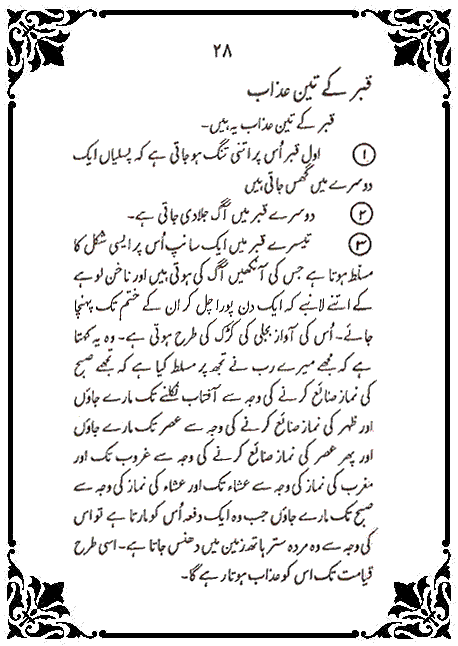 ۲۸
قبر کے تین عذاب
قبر کے تین عذاب یہ ہیں۔
① اول قبر اُس پر اتنی تنگ ہو جاتی ہے کہ پسلیاں ایک
دوسرے میں گھس جاتی ہیں
② دوسرے قبر میں آگ جلا دی جاتی ہے۔
③ تیسرے قبر میں ایک سانپ اُس پر ایسی شکل کا
مسلط ہوتا ہے جس کی آنکھیں آگ کی ہوتی ہیں اور ناخن لوہے
کے اتنے لانبے کہ ایک دن پورا چل کر ان کے ختم تک پہنچا
جائے۔ اُس کی آواز بجلی کی کڑک کی طرح ہوتی ہے۔ وہ یہ کہتا
ہے کہ مجھے میرے رب نے تجھ پر مسلط کیا ہے کہ تجھے صبح
کی نماز ضائع کرنے کی وجہ سے آفتاب نکلنے تک مارے جاؤں
اور ظہر کی نماز ضائع کرنے کی وجہ سے عصر تک مارے جاؤں
اور پھر عصر کی نماز ضائع کرنے کی وجہ سے غروب تک اور
مغرب کی نماز کی وجہ سے عشاء تک اور عشاء کی نماز کی وجہ سے
صبح تک مارے جاؤں جب وہ ایک دفعہ اُس کو مارتا ہے تو اس
کی وجہ سے وہ مردہ ستر ہاتھ زمین میں دھنس جاتا ہے۔ اسی طرح
قیامت تک اس کو عذاب ہوتا رہے گا۔